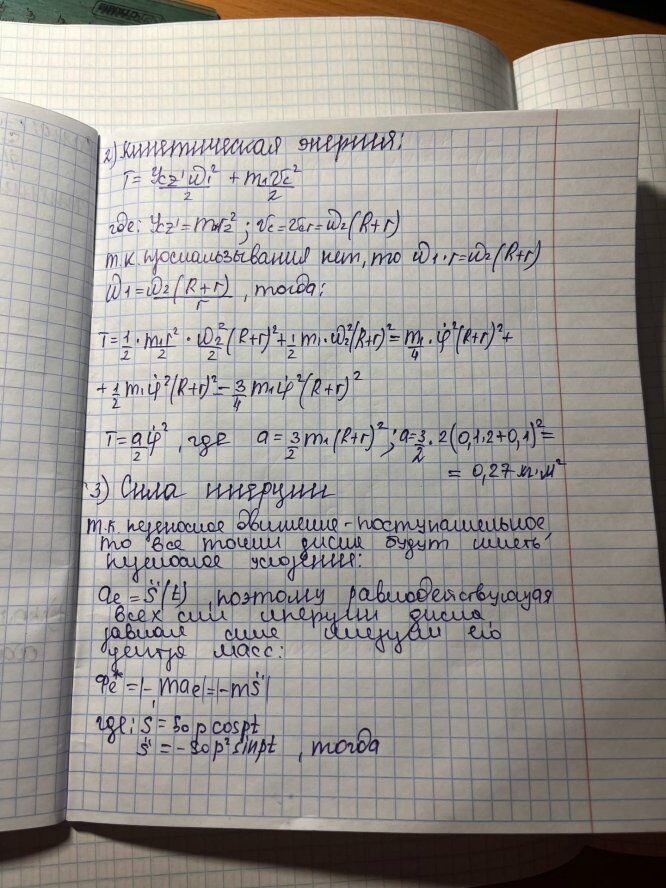 2) Кинетическая энергия:
T = Jcz'ω₁²/2 + m₁Vc²/2
где: Jcz' = m₁r²/2 ; Vc = Ver = ω₂(R+r)
т.к проскальзывания нет, то ω₁·r = ω₂(R+r)
ω₁ = ω₂(R+r)/r , тогда:
T = 1/2 · m₁r²/2 · ω₂²/r² (R+r)² + 1/2 m₁·ω₂²(R+r)² = m₁/4 · φ̇²(R+r)² +
+ 1/2 m₁φ̇²(R+r)² = 3/4 m₁φ̇²(R+r)²
T = a/2 φ̇² , где a = 3/2 m₁(R+r)² ; a = 3/2 · 2(0,1·2+0,1)² =
= 0,27 кг·м²
3) Сила инерции
т.к переносное движение - поступательное,
то все точки диска будут иметь
переносное ускорение:
ae = S̈(t) , поэтому равнодействующая
всех сил инерции диска,
равная силе инерции его
центра масс:
Фe* = |- mae| = |-mS̈|
где: Ṡ = S₀ p cospt
S̈ = - S₀p² sinpt , тогда